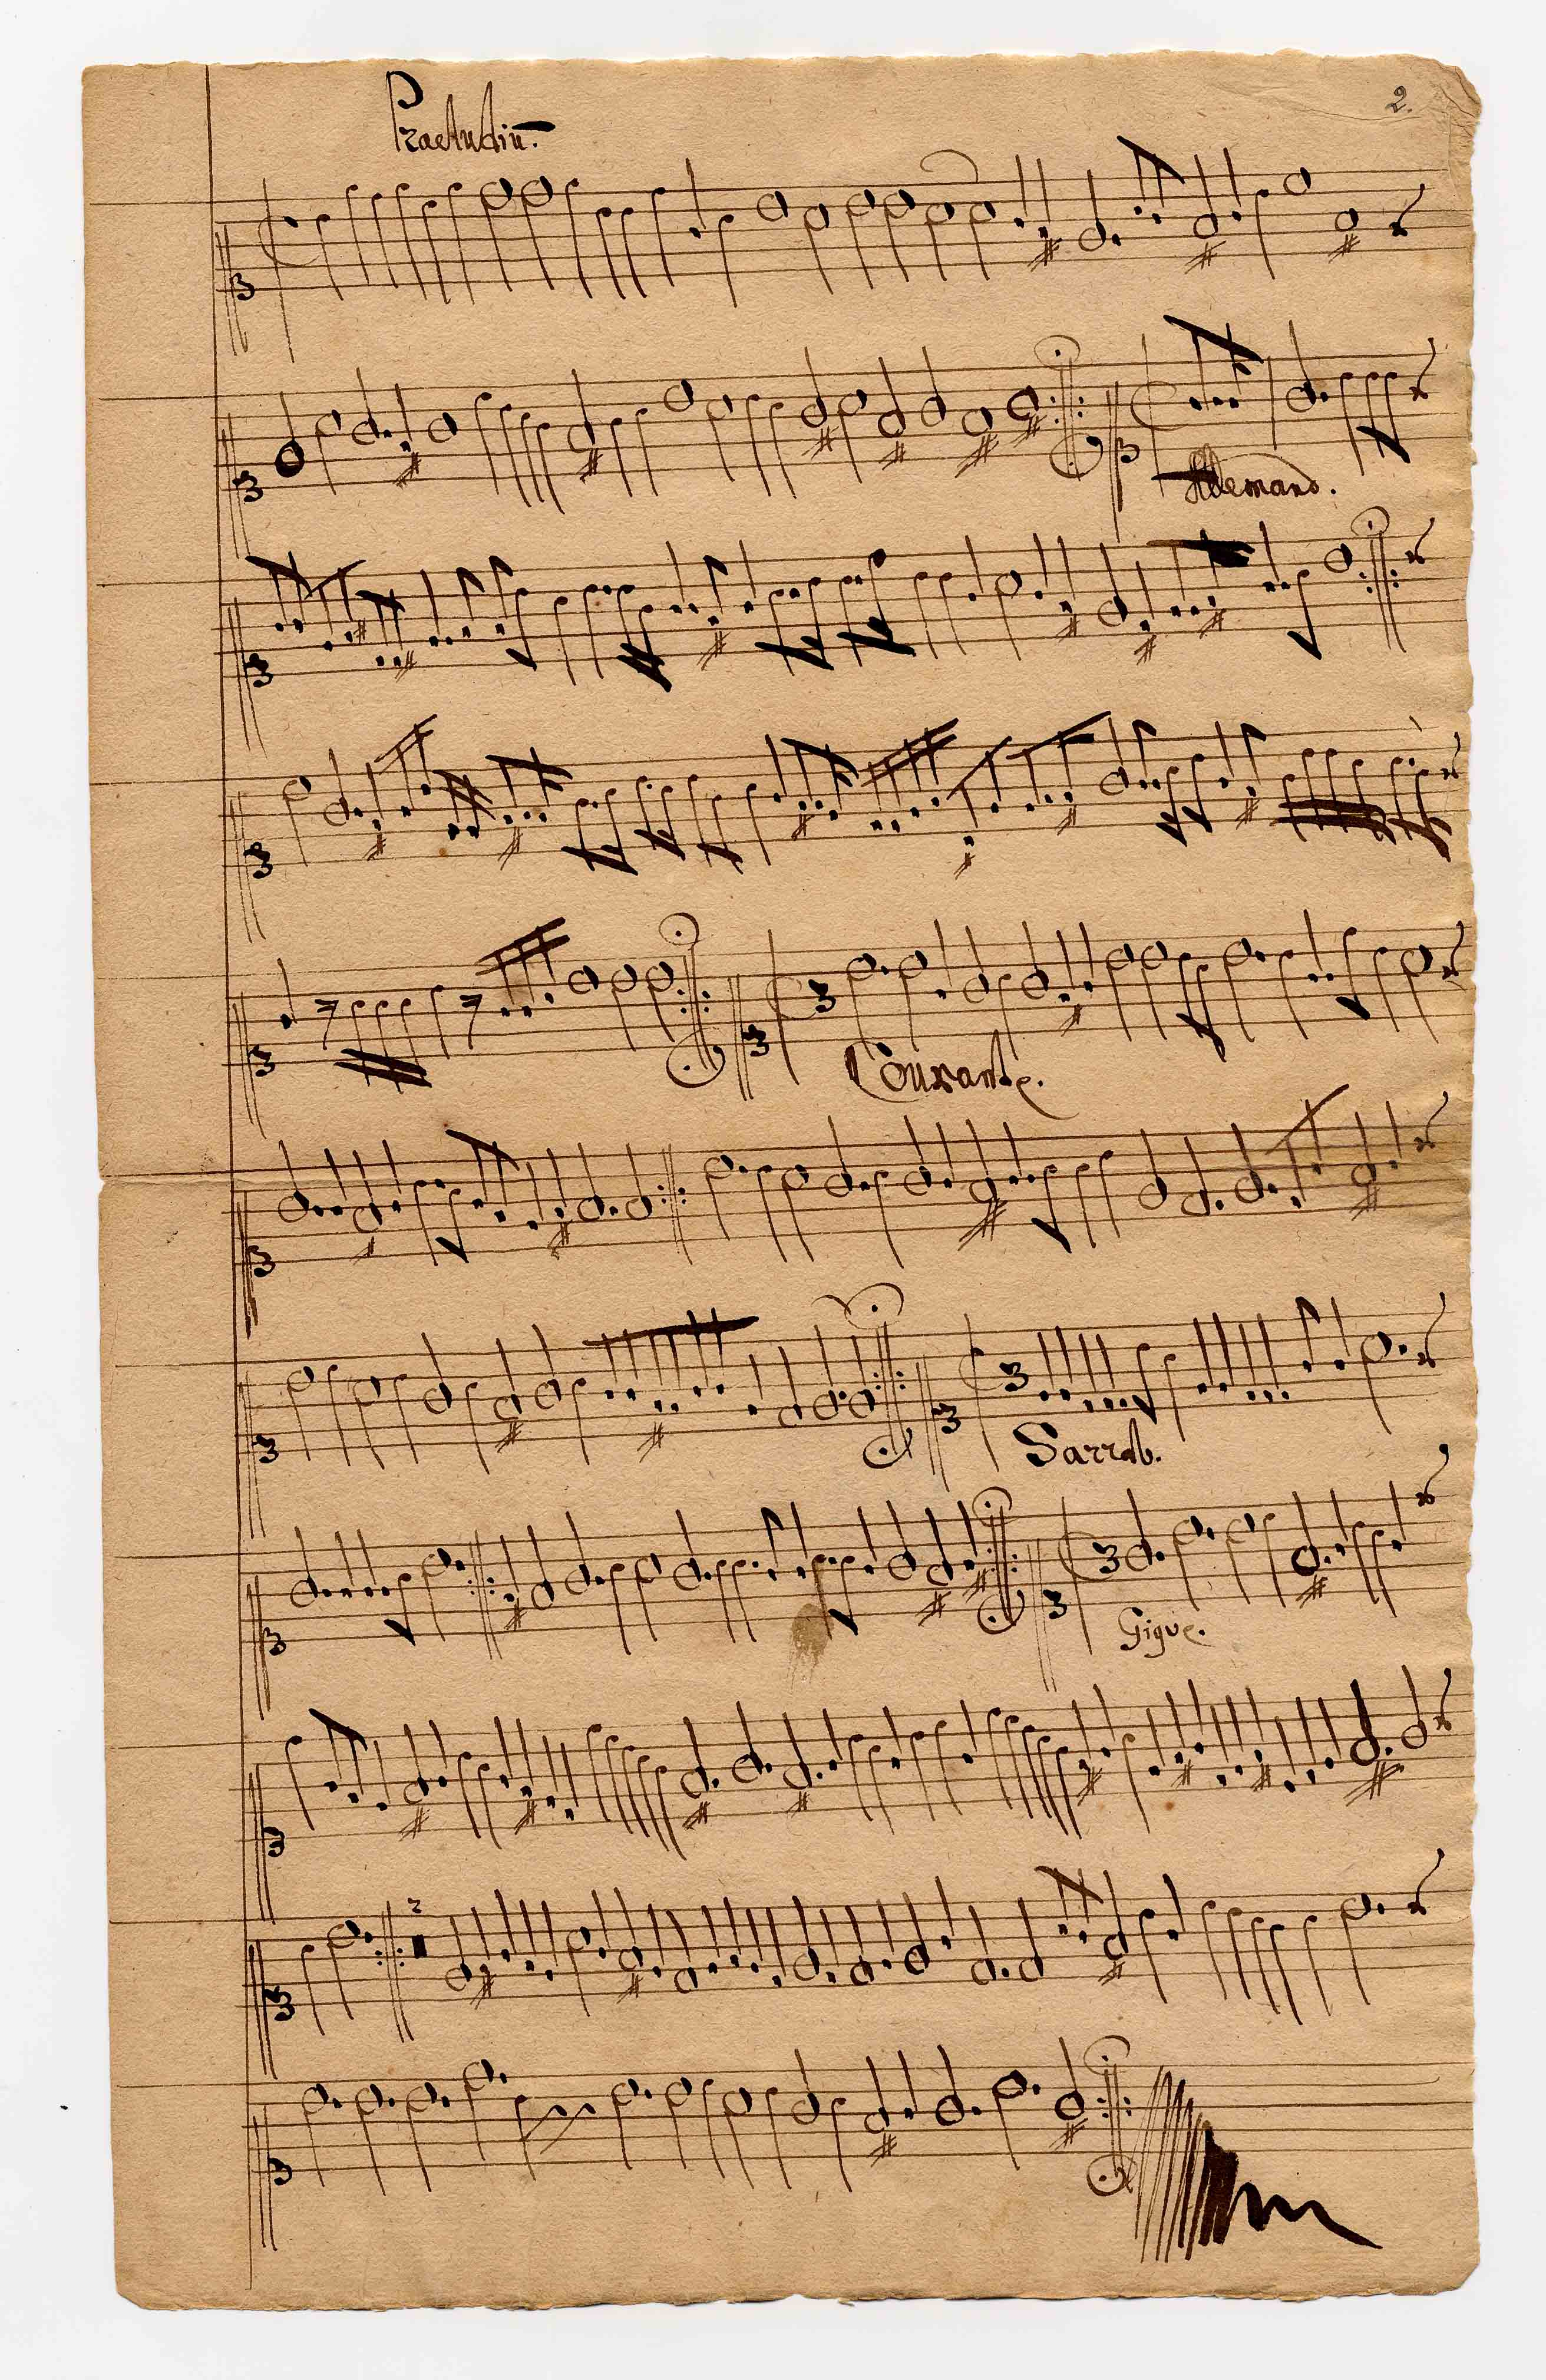 2.
Praeludiū.
Allemand.
Courante.
Sarrab.
Gigue.